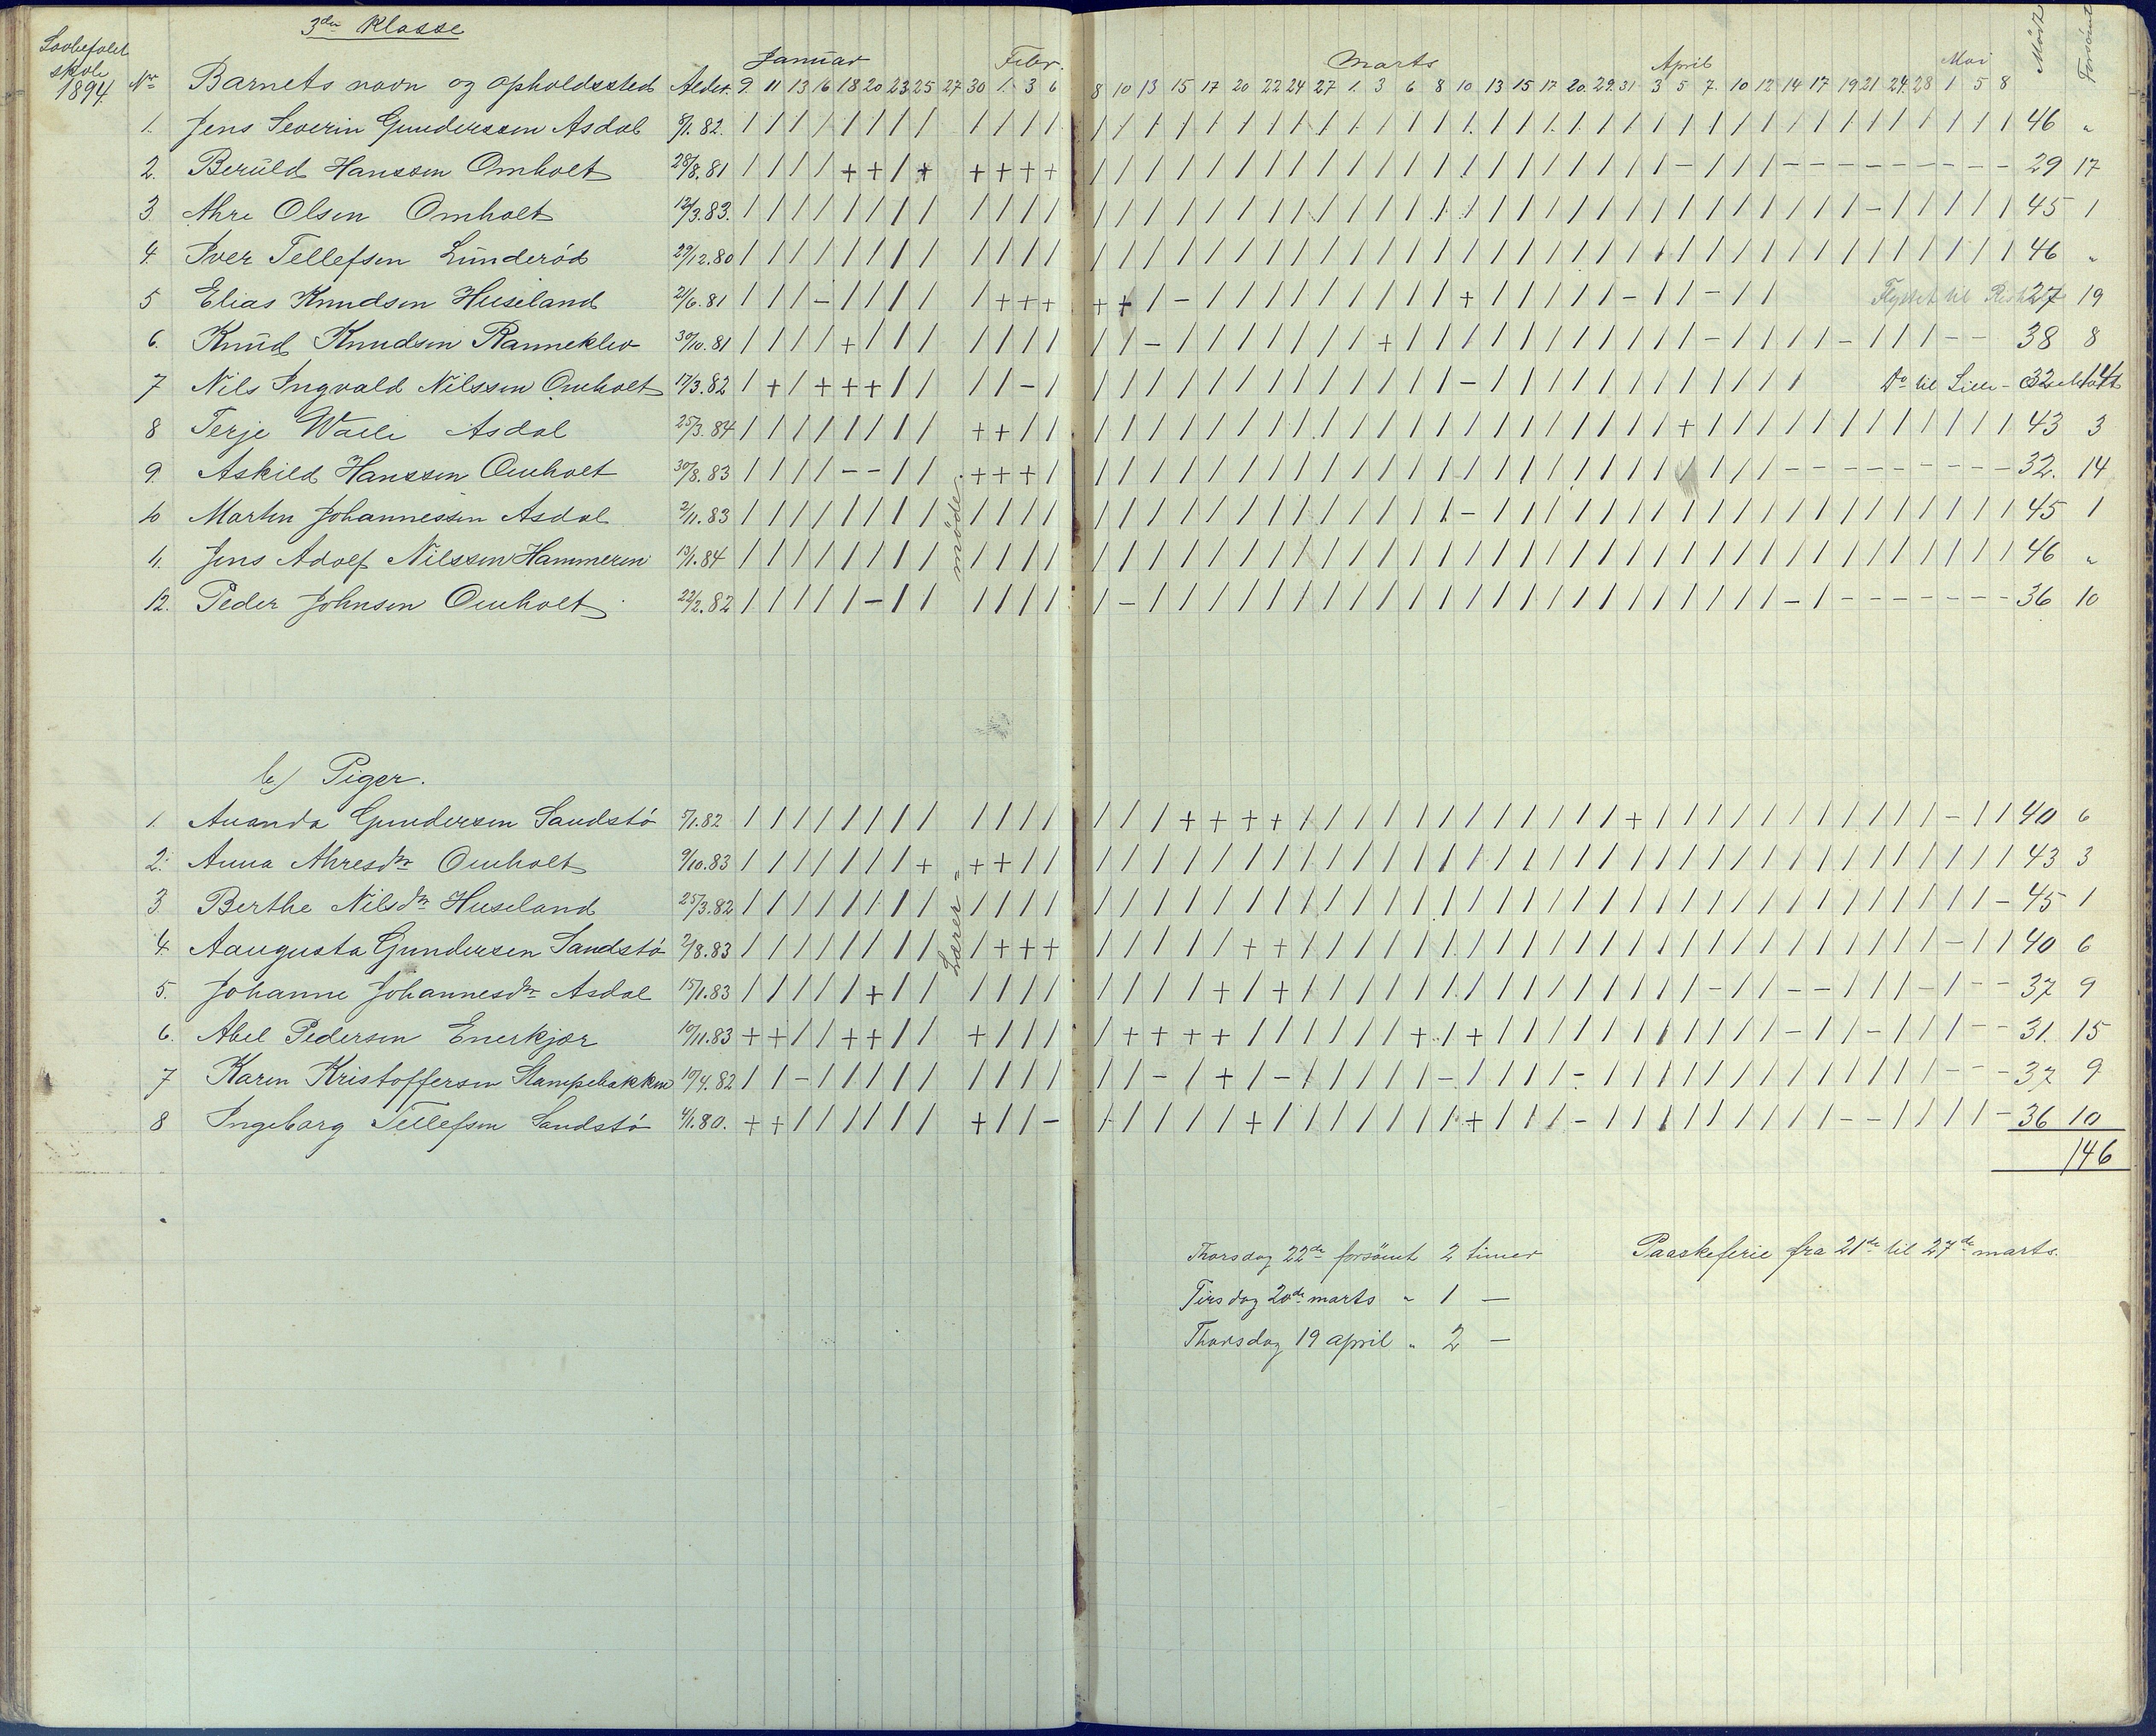 3die Klasse
Lovbefalet
skole
1894.
Januar Febr. Marts April Mai
No Barnets navn og opholdssted Alder. 9 11 13 16 18 20 23 25 27 30 1 3 6 8 10 13 15 17 20 22 24 27 1 3 6 8 10 13 15 17 20 29 31 3 5 7 10 12 14 17 19 21 24 28 1 5 8 Mödt Forsömt
1. Jens Severin Gunderssen Asdal 5/1.82. / / / / / / / / / / / / / / / / / / / / / / / / / / / / / / / / / / / / / / / / / / / / / / 46 "
2. Beruld Hanssen Omholt 28/8.81 / / / / + + / + + + + + / / / / / / / / / / / / / / / / / / / / / - / / / - - - - - - - - - 29 17
3. Ahre Olsen Omholt 12/3.83. / / / / / / / / / / / / / / / / / / / / / / / / / / / / / / / / / / / / / / / / - / / / / / 45 1
4. Iver Tellefsen Lunderöd 29/12.80 / / / / / / / / / / / / / / / / / / / / / / / / / / / / / / / / / / / / / / / / / / / / / / 46 "
5 Elias Knudsen Huseland 2/6.81 / / / - / / / / / + + + + + / - / / / / / / / / / + / / / / / - / / - / / Flyttet til 27 19
6. Knud Knudsen Ranneklev 30/10.81 / / / / + / / / / / / / / / - / / / / / / / + / / / / / / / / / / / - / / / / - / / / - - 38 8
7 Nils Ingvald Nilssen Omholt 17/3.82 / + / + + + / / / / - / / / / / / / / / / / / / / - / / / / / / / / / / / / Do til Lille- 32 14
8 Terje Walle Asdal 25/3.84 / / / / / / / / + + / / / / / / / / / / / / / / / / / / / / / / / + / / / / / / / / / / / / 43 3
9. Askild Hanssen Omholt 30/8.83 / / / / - - / / + + + / / / / / / / / / / / / / / / / / / / / / / / / / / - - - - - - - - - 32. 14
10 Martin Johannessen Asdal 2/11.83 / / / / / / / / / / / / / / / / / / / / / / / / / - / / / / / / / / / / / / / / / / / / / / 45 1
11. Jens Adolf Nilssen Hammeren 13/1.84 / / / / / / / / / / / / / / / / / / / / / / / / / / / / / / / / / / / / / / / / / / / / / / 46 "
12. Peder Johnsen Omholt 22/2.82 / / / / / - / / / / / / / - / / / / / / / / / / / / / / / / / / / / / / / - / - - - - - - - 36 10
Lærer-möde.
b) Piger.
1. Ananda Gundersen Sandstö 5/1.82 / / / / / / / / / / / / / / / + + + + / / / / / / / / / / / / + / / / / / / / / / / / - / / 40 6
2. Anna Ahresdtr Omholt 9/10.83 / / / / / / / + + + / / / / / / / / / / / / / / / / / / / / / / / / / / / / / / / / / / / / 43 3
3. Berthe Nilsdtr Huseland 25/3.82 / / / / / / / / / / / / / / / / / / / / / / / / / / / / / / / / / / / / / / / / / / / / / - 45 1
4. Aaugusta Gundersen Sandstö 2/8.83 / / / / / / / / / + + + / / / / / + + / / / / / / / / / / / / / / / / / / / / / / / / - / / 40 6
5. Johanne Johannesdtr Asdal 15/1.83 / / / / / + / / / / / / / / / / + / + / / / / / / / / / / / / / / / - / / - - / / / - / - - 37 9
6. Abel Pedersen Enerkjær 10/11.83 + + / / + + / / + / / / / + + + + / / / / / / + / + / / / / / / / / / / / - / / - / / / - - 31. 15
7 Karen Kristoffersen Stampebakken 10/4.82 / / - / / / / / / / / / / / - / + / - / / / / / - / / / / - / / / / / / / / / / / / / - - - 37 9
8 Ingeborg Tellefsen Sandstö 4/1.80. + + / / / / / / + / / - / / / / / + / / / / / / / + / / / - / / / / / / / / / - - / / / / - 36 10
146
Thorsdag 22de forsömt 2 timer Paaskeferie fra 21de til 27de marts.
Tirsdag 20de marts " 1 —
Thorsdag 19 april " 2 —